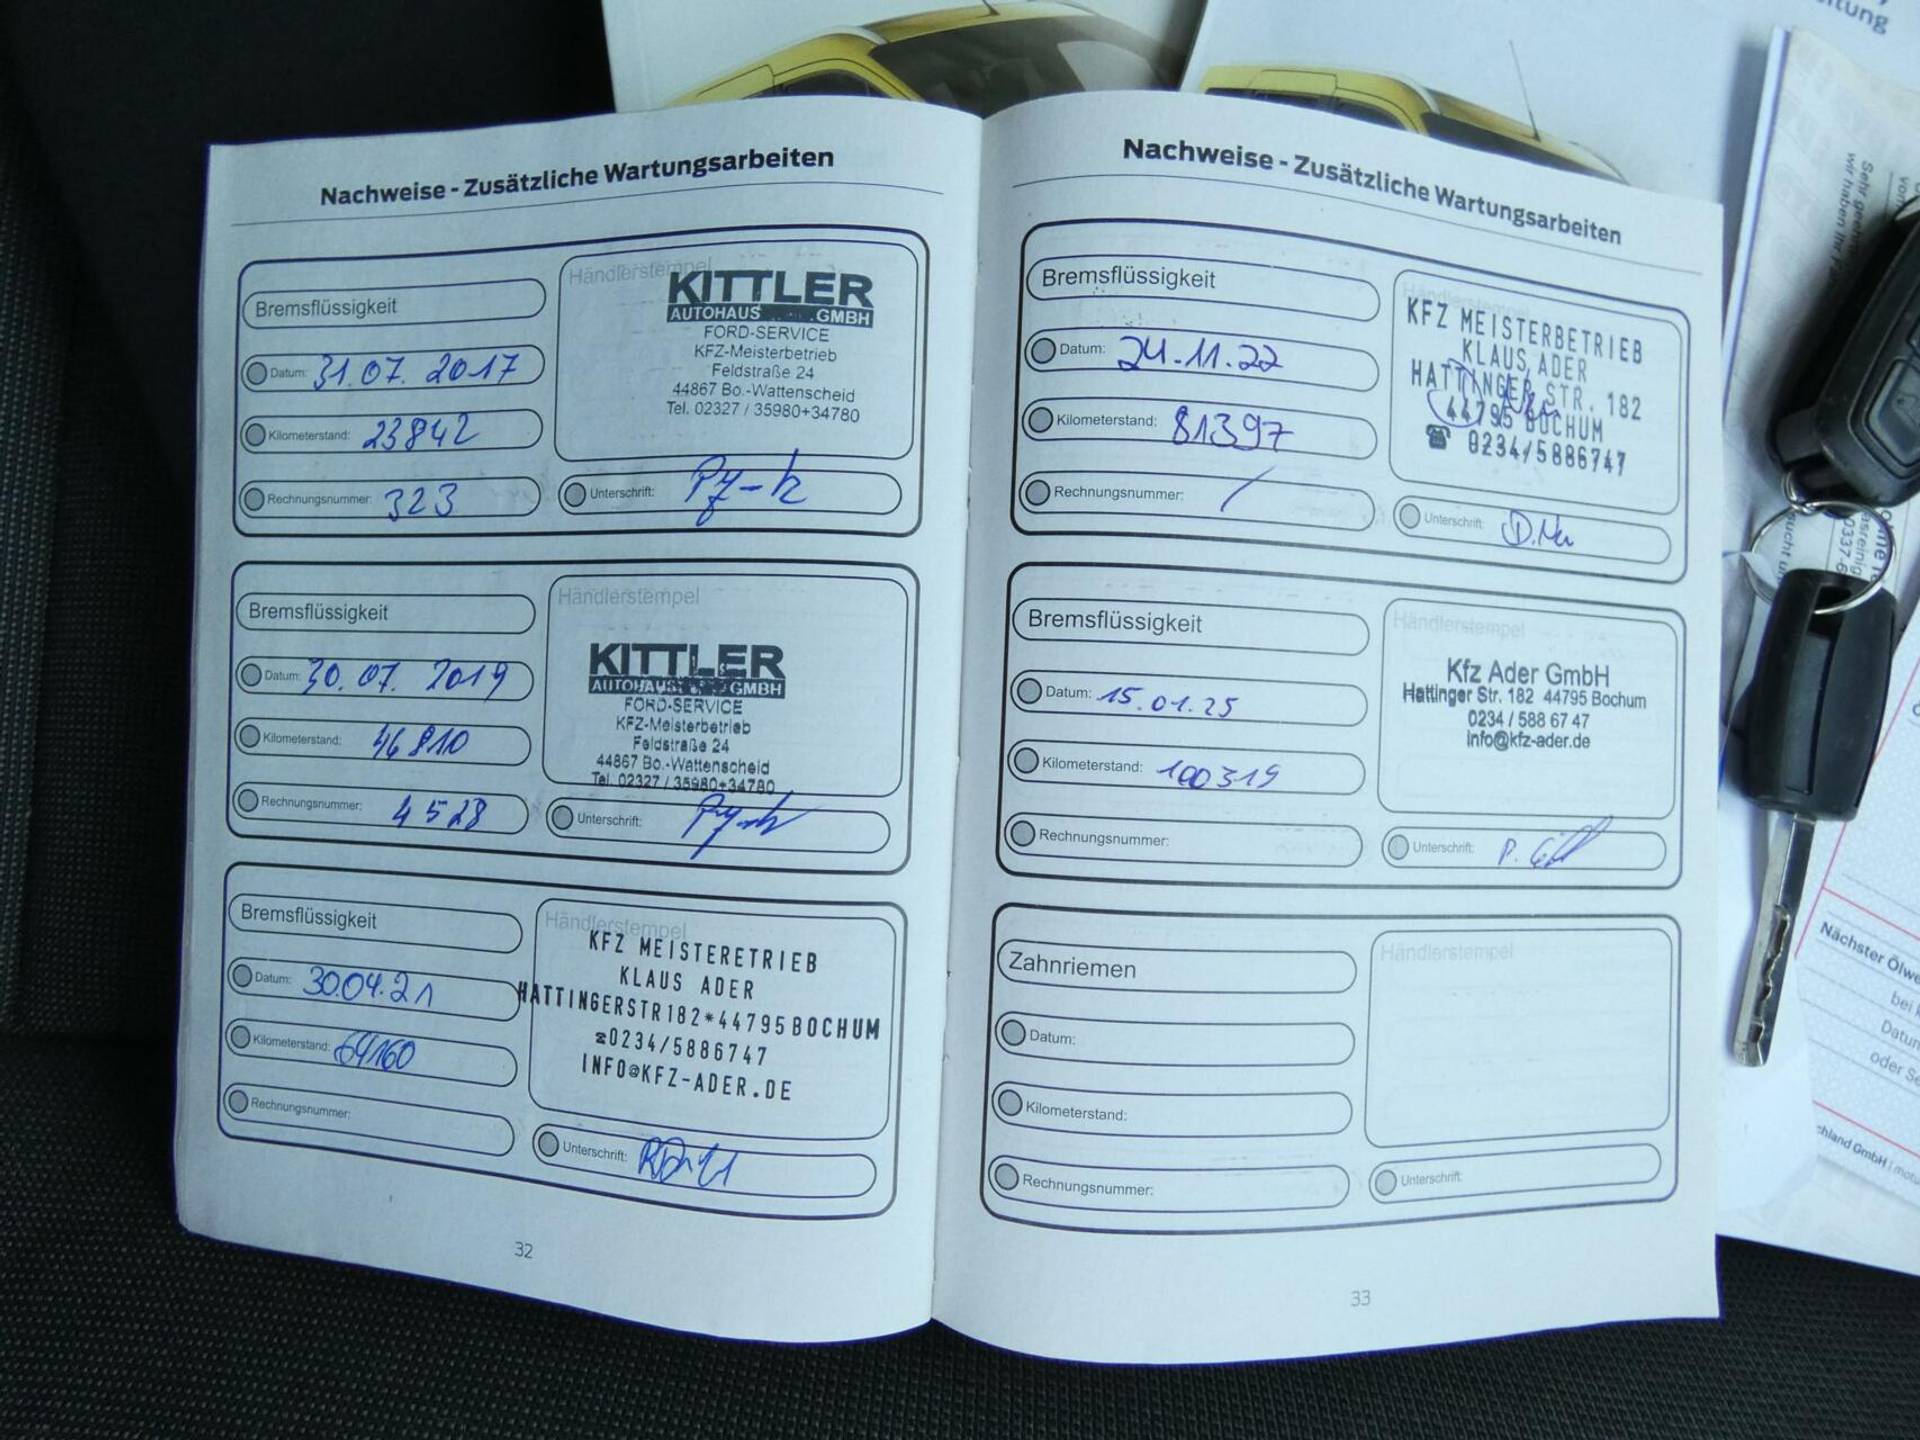 Nachweise - Zusätzliche Wartungsarbeiten
Bremsflüssigkeit
Datum: 31.07.2017
Kilometerstand: 23842
Rechnungsnummer: 323
Händlerstempel
KITTLER
AUTOHAUS GMBH
FORD-SERVICE
KFZ-Meisterbetrieb
Feldstraße 24
44867 Bo.-Wattenscheid
Tel. 02327 / 35980+34780
Unterschrift:
Bremsflüssigkeit
Datum: 30.07.2019
Kilometerstand: 46810
Rechnungsnummer: 4528
Händlerstempel
KITTLER
AUTOHAUS GMBH
FORD-SERVICE
KFZ-Meisterbetrieb
Feldstraße 24
44867 Bo.-Wattenscheid
Tel. 02327 / 35980+34780
Unterschrift:
Bremsflüssigkeit
Datum: 30.04.21
Kilometerstand: 64160
Rechnungsnummer:
Händlerstempel
KFZ MEISTERETRIEB
KLAUS ADER
HATTINGERSTR182*44795BOCHUM
☎0234/5886747
INFO@KFZ-ADER.DE
Unterschrift:
32
Nachweise - Zusätzliche Wartungsarbeiten
Bremsflüssigkeit
Datum: 24.11.22
Kilometerstand: 81397
Rechnungsnummer: /
Händlerstempel
KFZ MEISTERBETRIEB
KLAUS ADER
HATTINGER STR. 182
44795 BOCHUM
☎ 0234/5886747
Unterschrift:
Bremsflüssigkeit
Datum: 15.01.25
Kilometerstand: 100319
Rechnungsnummer:
Händlerstempel
Kfz Ader GmbH
Hattinger Str. 182 44795 Bochum
0234 / 588 67 47
info@kfz-ader.de
Unterschrift:
Zahnriemen
Datum:
Kilometerstand:
Rechnungsnummer:
Händlerstempel
Unterschrift:
33
Nächster Ölwe
bei
Datum
oder Se
chland GmbH